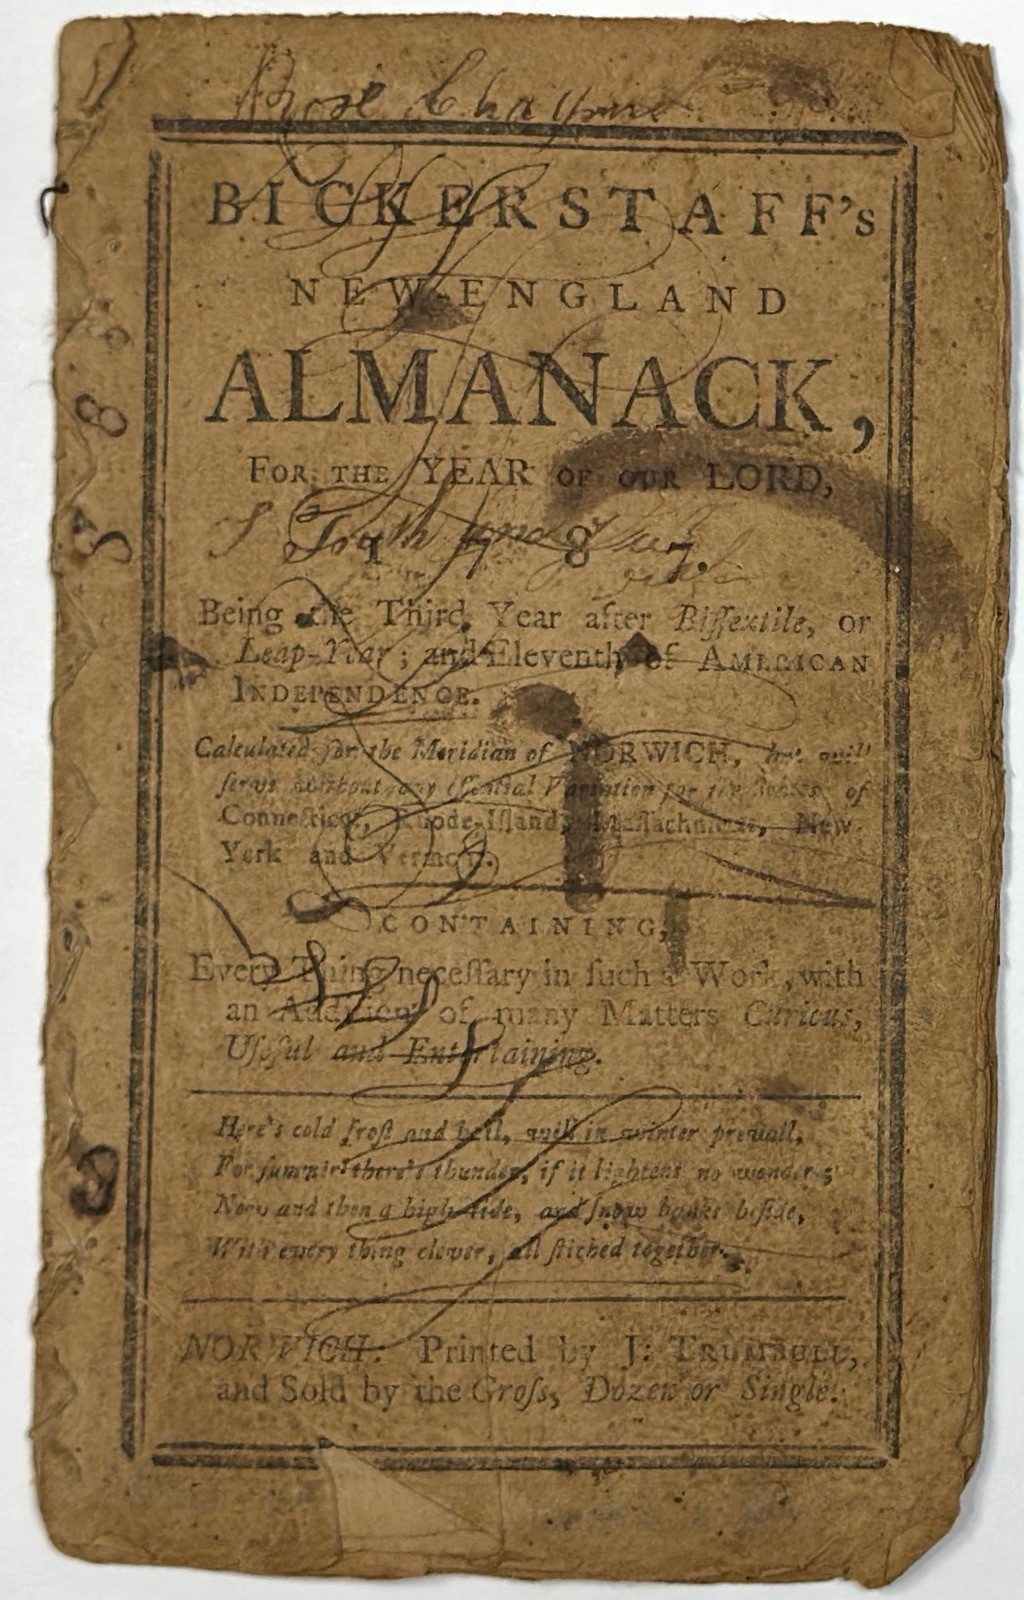 BICKERSTAFF's
NEW-ENGLAND
ALMANACK,
FOR THE YEAR OF OUR LORD,
1 7 8 7.
Being the Third Year after Biſſextile, or
Leap-Year; and Eleventh of AMERICAN
INDEPENDENCE.
Calculated for the Meridian of NORWICH, but will
ſerve without any eſſential Variation for the States of
Connecticut, Rhode-Iſland, Maſſachuſetts, New-
York and Vermont.
CONTAINING,
Every Thing neceſſary in ſuch a Work, with
an Addition of many Matters Curious,
Uſeful and Entertaining.
Here's cold froſt and hail, will in winter prevail,
For ſummer there's thunder, if it lightens no wonder;
Now and then a high-tide, and ſnow banks beſide,
With every thing clever, all ſtiched together.
NORWICH: Printed by J: TRUMBULL,
and Sold by the Groſs, Dozen or Single.